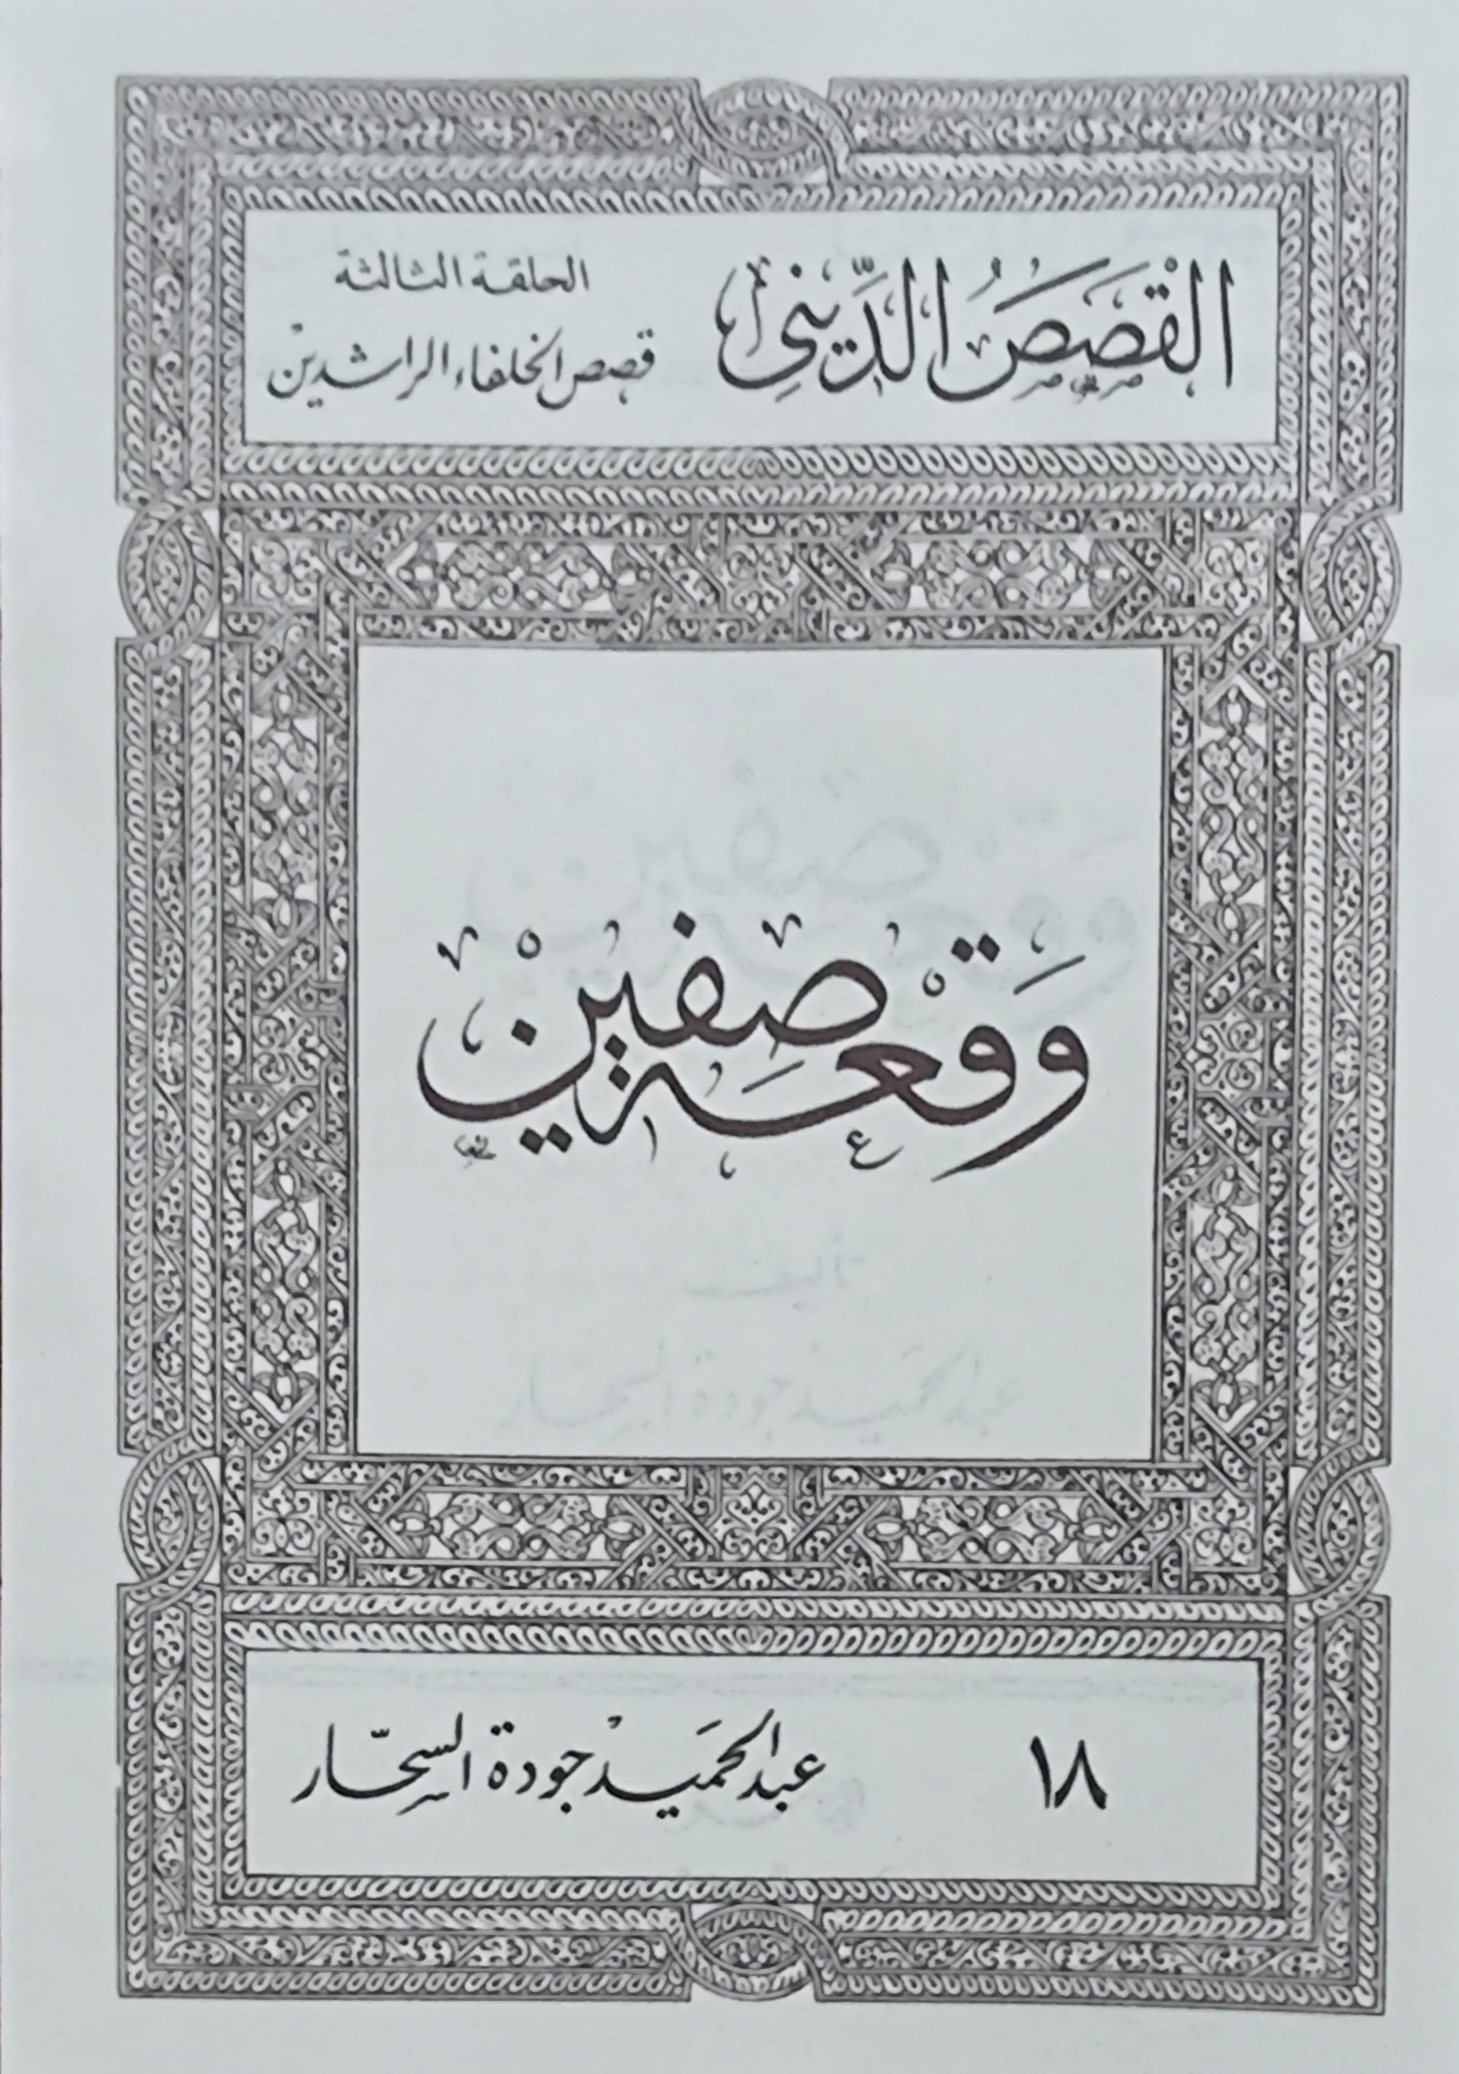 القَصَصُ الدِّيني
الحلقة الثالثة
قصص الخلفاء الراشدين
وَقْعَة صِفين
١٨
عبد الحَميد جودة السحّار